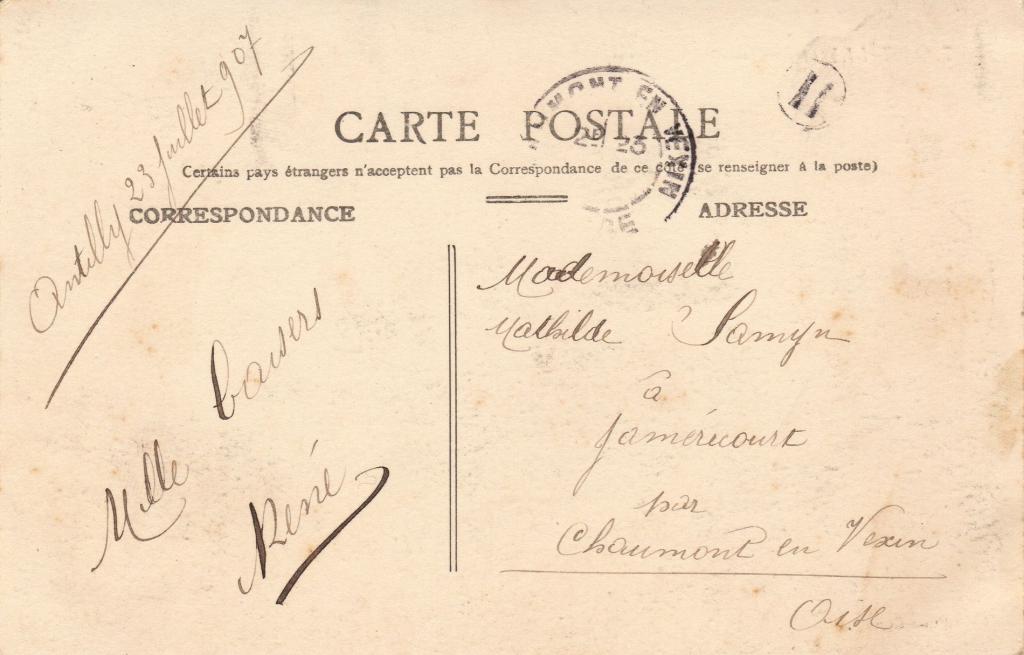 Antilly 23 Juillet 907
CARTE POSTALE
MONT EN VEXIN
23
Certains pays étrangers n'acceptent pas la Correspondance de ce côté (se renseigner à la poste)
CORRESPONDANCE
ADRESSE
Mille baisers
René
Mademoiselle
Mathilde Samyn
à
Jaméricourt
par
Chaumont en Vexin
Oise